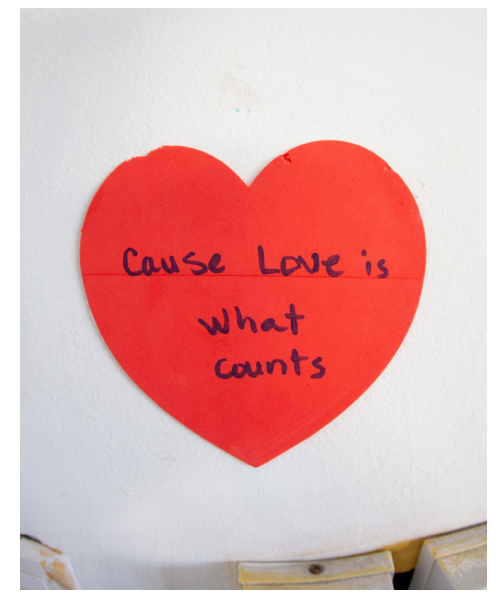 Cause Love is
What
counts